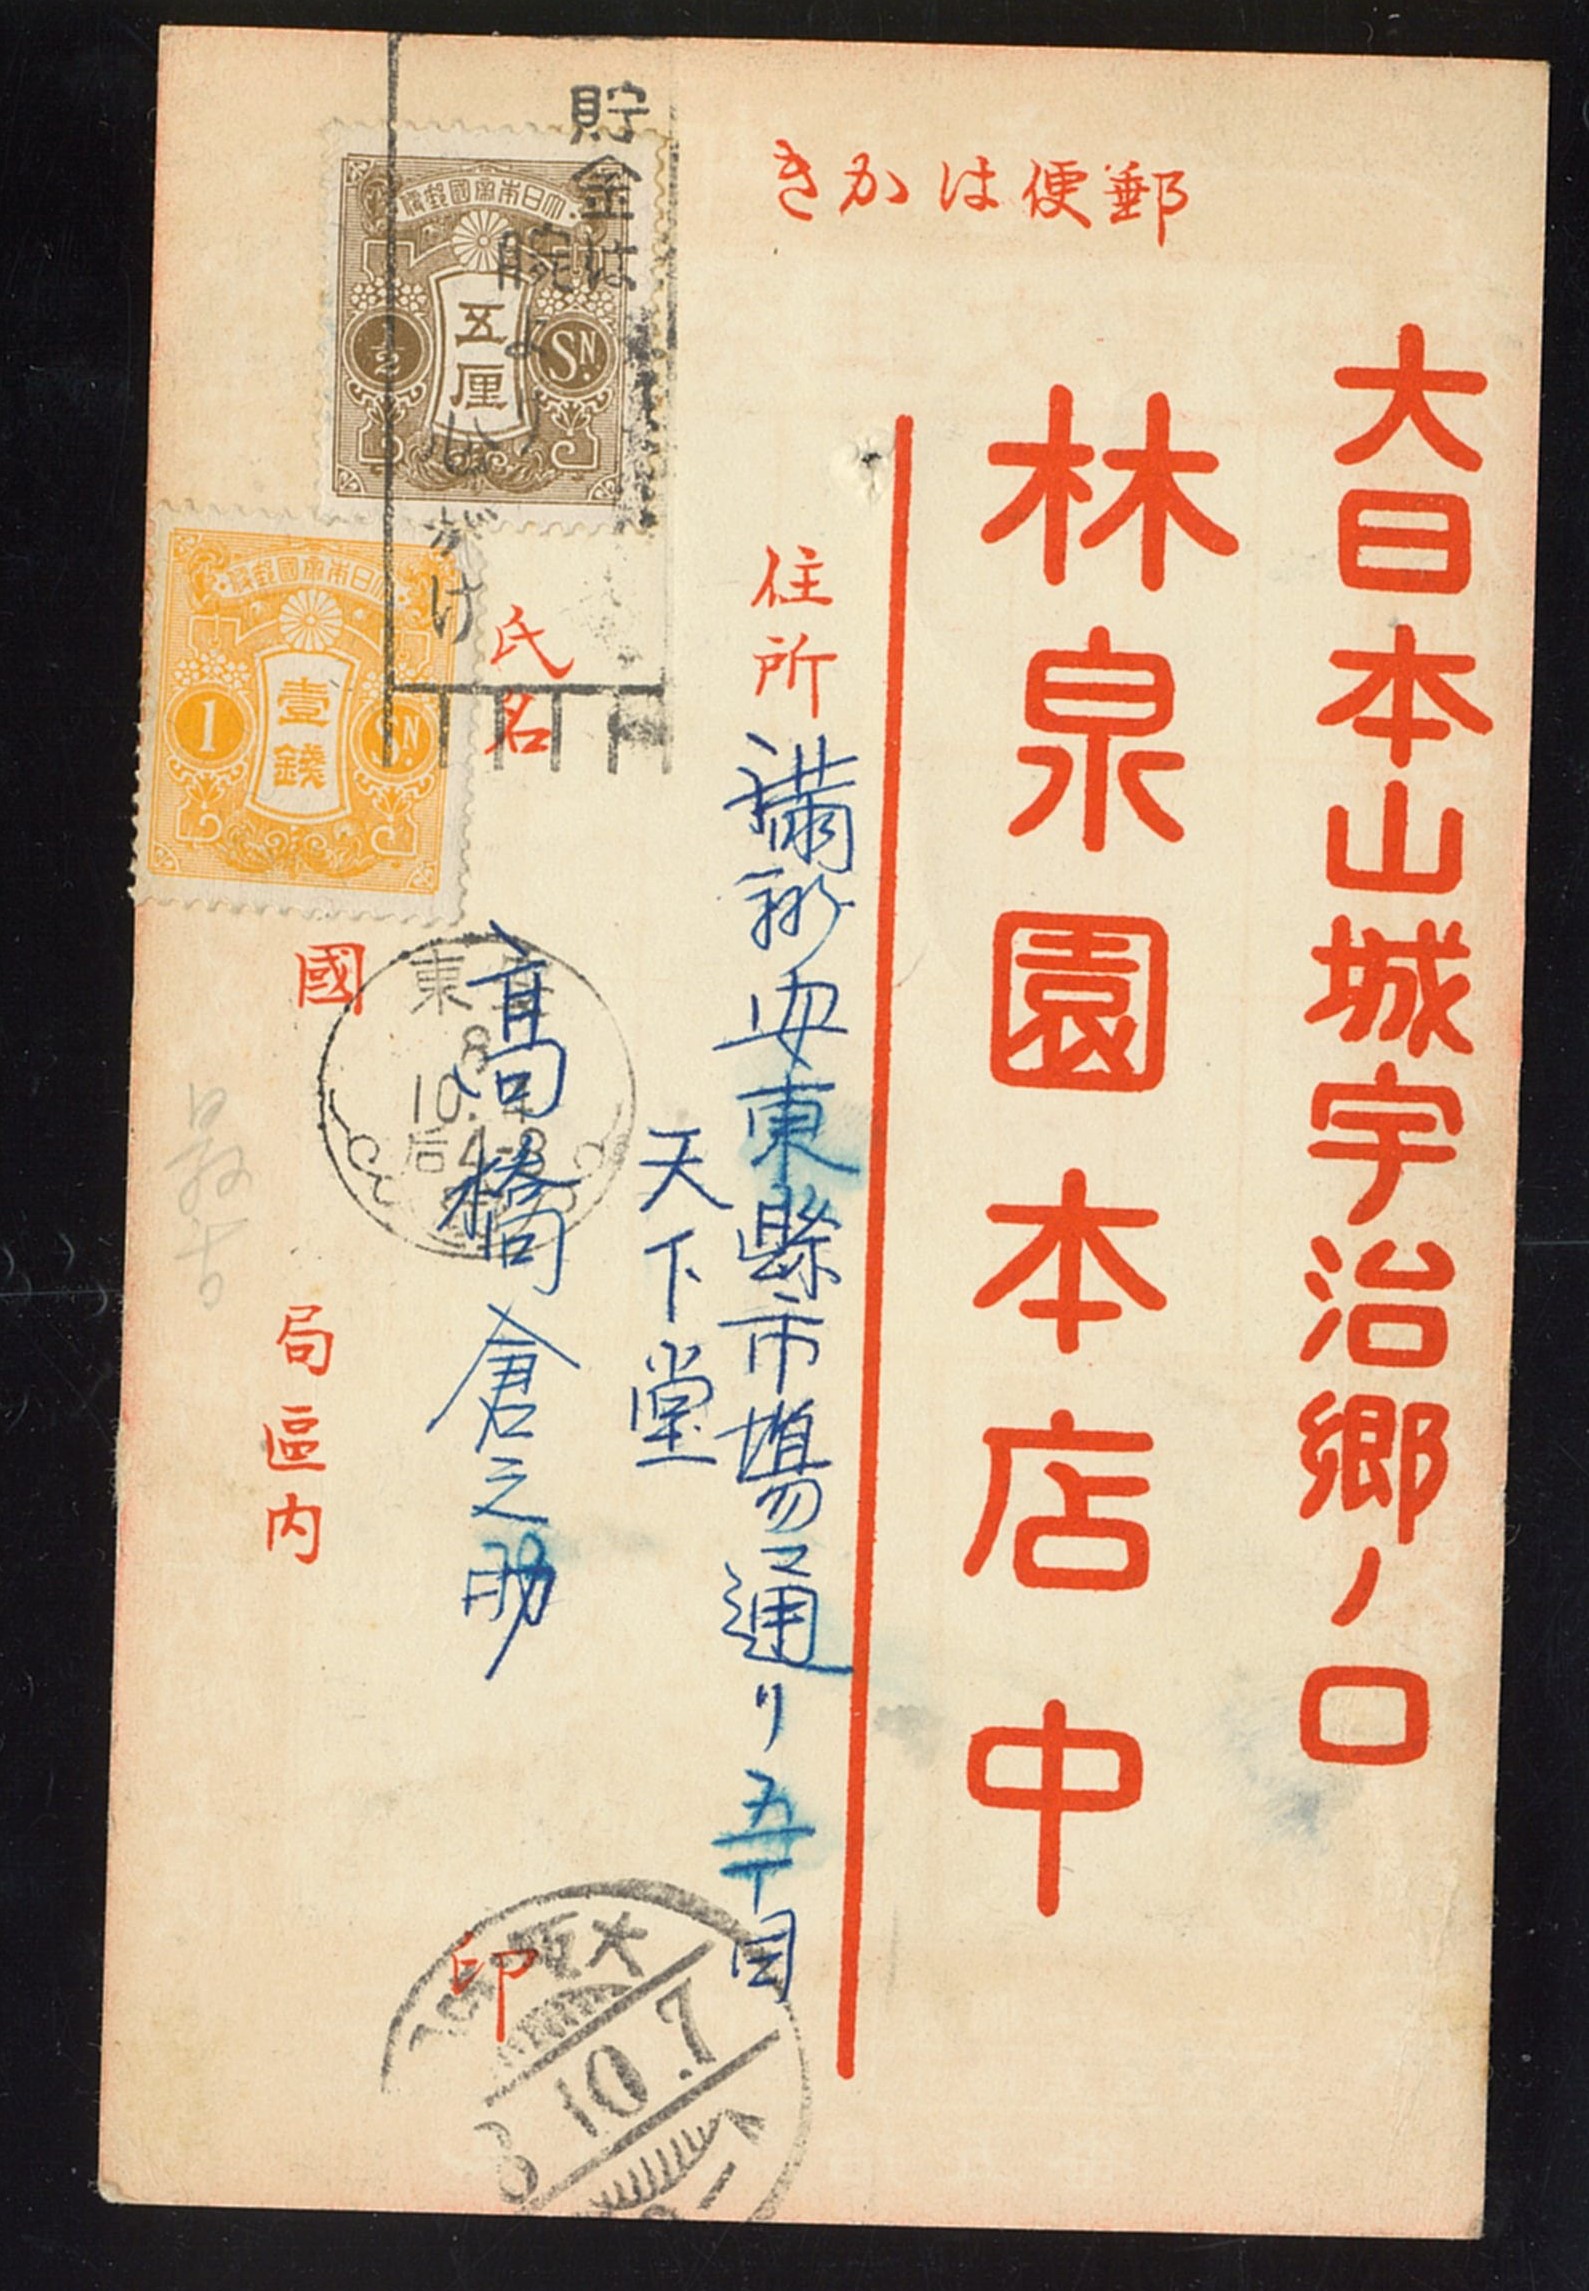 郵便はかき
大日本山城宇治郷ノ口
林泉園本店中
住所
満州安東縣市場通り五丁目
天下堂
氏名
高橋倉之助
印
國
局區内
貯金は
腕より
心がけ
大日本帝國郵便
五厘
1/2
SN.
大日本帝國郵便
壹錢
1
SN.
安東
8
10.4
后4-8
大阪
8.10.7